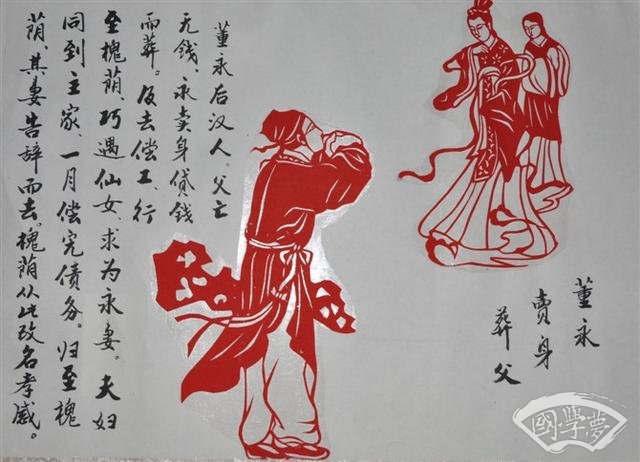 董永
賣身
葬父
董永后汉人。父亡
无钱、永卖身贷钱
而葬。及去偿工、行
至槐荫、巧遇仙女、求为永妻。夫妇
同到主家、一月偿完债务。归至槐
荫、其妻告辞而去。槐荫从此改名孝感。
國學夢